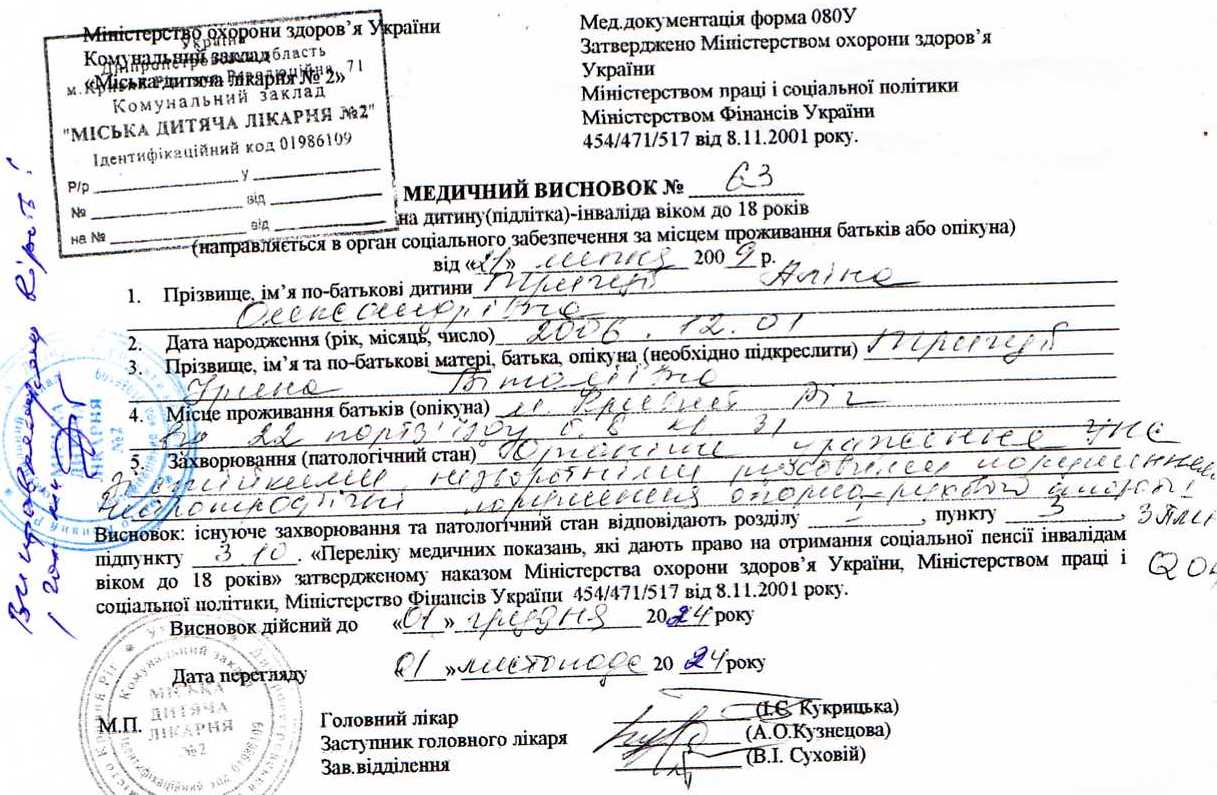 Міністерство охорони здоров’я України
Комунальний заклад
«Міська дитяча лікарня № 2»
Україна
Дніпропетровська область
м. Кривий Ріг 71
Комунальний заклад
"МІСЬКА ДИТЯЧА ЛІКАРНЯ №2"
Ідентифікаційний код 01986109
Р/р у
№ від
на № від
Мед.документація форма 080У
Затверджено Міністерством охорони здоров’я
України
Міністерством праці і соціальної політики
Міністерством Фінансів України
454/471/517 від 8.11.2001 року.
МЕДИЧНИЙ ВИСНОВОК № 63
на дитину(підлітка)-інваліда віком до 18 років
(направляється в орган соціального забезпечення за місцем проживання батьків або опікуна)
від «21» липня 2009 р.
1. Прізвище, ім’я по-батькові дитини Аліна
Олександрівна
2. Дата народження (рік, місяць, число) 2006. 12. 01
3. Прізвище, ім’я та по-батькові матері, батька, опікуна (необхідно підкреслити)
Ірина Віталіївна
4. Місце проживання батьків (опікуна) м. Кривий Ріг
22 партз'їзду б. 8 кв 31
5. Захворювання (патологічний стан) Органічне ураження ЦНС
стійкими незворотніми руховими порушеннями
порушення опорно-рухового апарату
Висновок: існуюче захворювання та патологічний стан відповідають розділу , пункту 3,
підпункту 3.10. «Переліку медичних показань, які дають право на отримання соціальної пенсії інвалідам
віком до 18 років» затвердженому наказом Міністерства охорони здоров’я України, Міністерством праці і
соціальної політики, Міністерство Фінансів України 454/471/517 від 8.11.2001 року.
Висновок дійсний до «01» грудня 2024 року
Дата перегляду 01 » листопада 20 24 року
М.П.
Головний лікар (І.Є. Кукрицька)
Заступник головного лікаря (А.О.Кузнецова)
Зав.відділення (В.І. Суховій)
Виправленому вірить!
МІСЬКА
ДИТЯЧА
ЛІКАРНЯ
№2
Комунальний заклад
МІСЬКА
ДИТЯЧА
ЛІКАРНЯ
№2